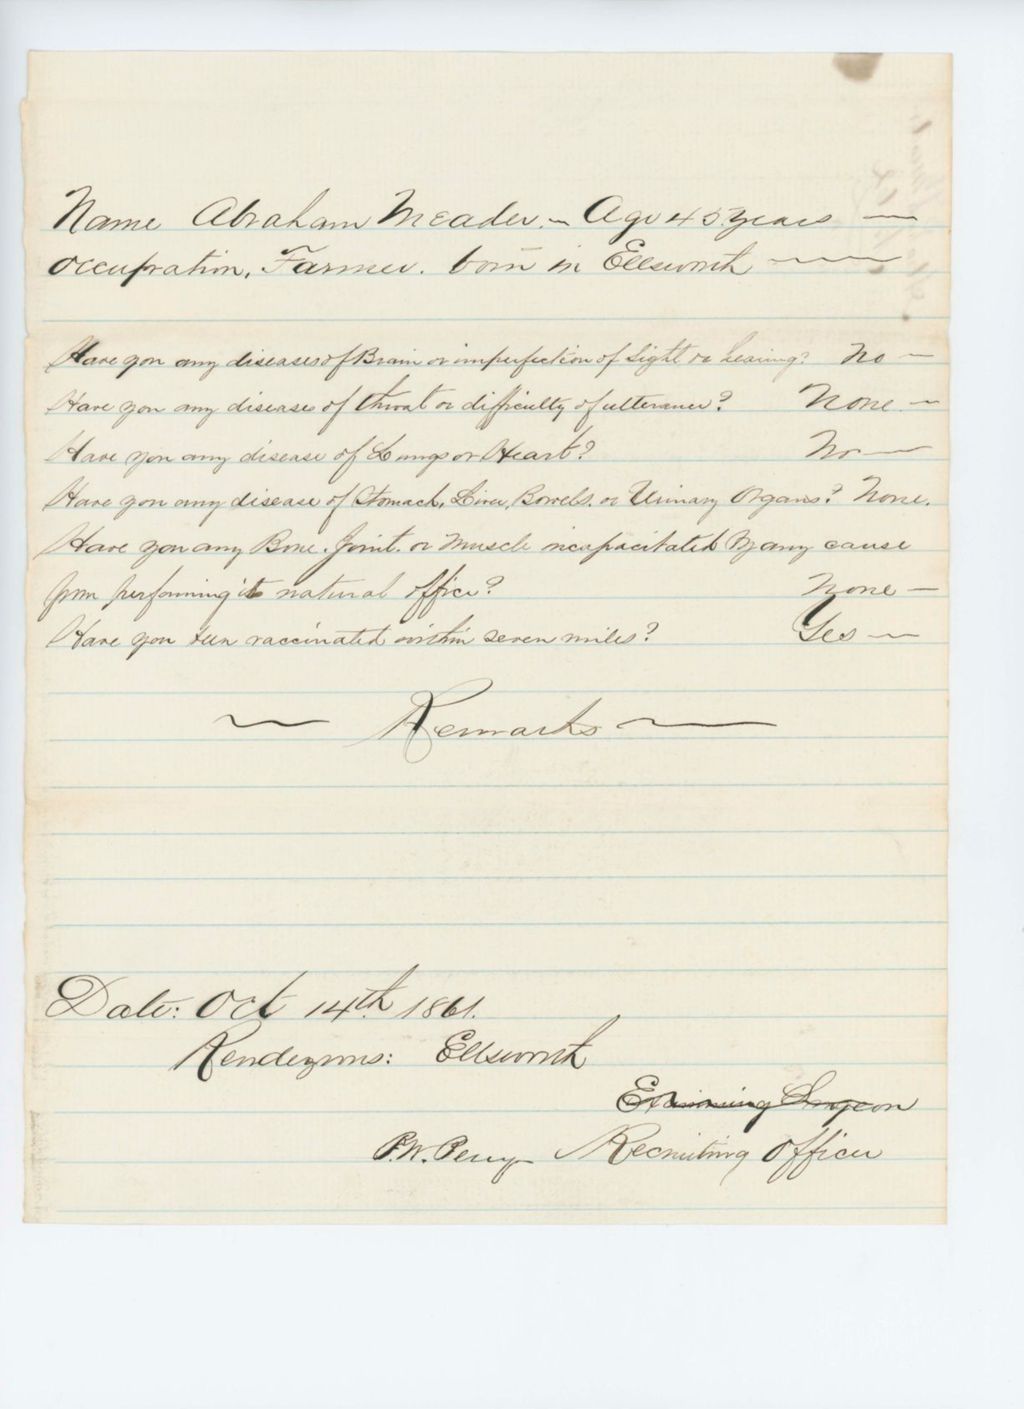 Name Abraham Meader. Age 45 years
occupation, Farmer. born in Ellsworth
Have you any diseases of Brain or imperfection of Sight or hearing? No
Have you any diseases of throat or difficulty of utterance? None
Have you any disease of Lungs or Heart? No
Have you any disease of Stomach, Liver, Bowels. or Urinary Organs? None.
Have you any Bone. Joint. or Muscle incapacitated by any cause
from performing its natural office? None
Have you been vaccinated within seven miles? Yes
Remarks
Date: Oct 14th 1861.
Rendezvous: Ellsworth
Examining Surgeon
P.W. Perry Recruiting Officer